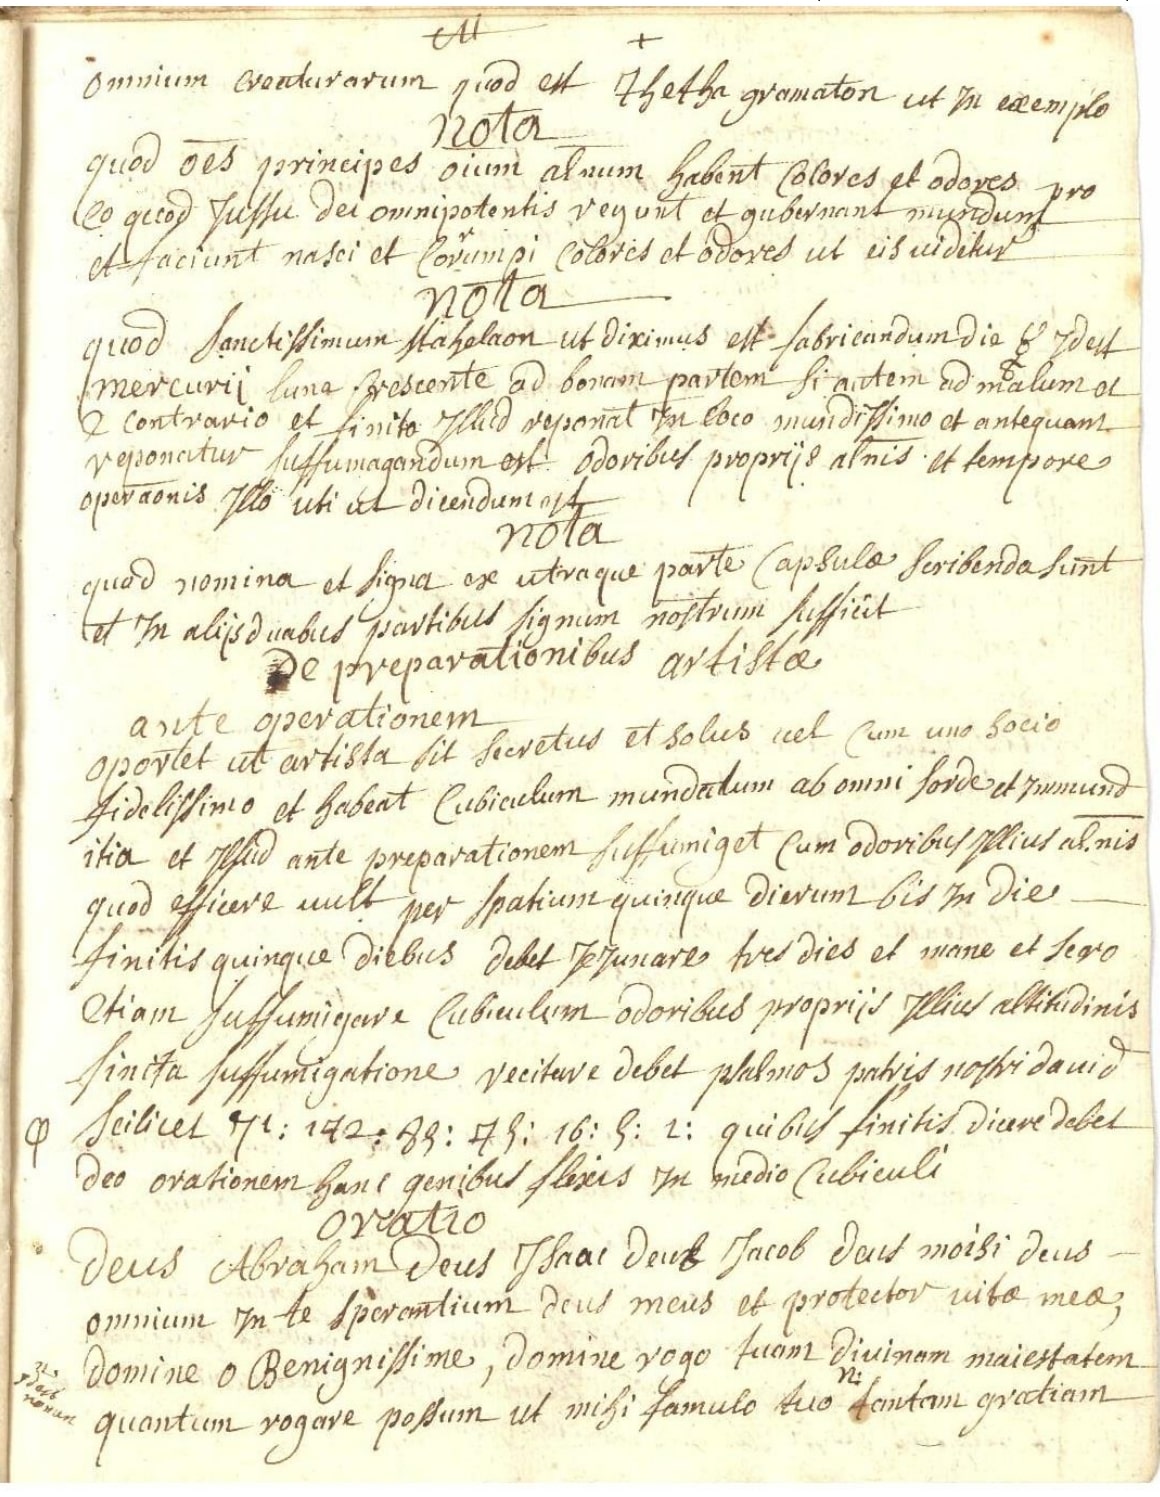 omnium creaturarum quod est Thetha gramaton ut In exemplo
nota
quod oēs principes oium alnum habent Colores et odores pro
eo quod Jussu dei omnipotentis regunt et gubernant mundum
et faciunt nasci et Corrumpi Colores et odores ut eis uidetur
nota
quod Sanctissimum ut diximus est fabricandum die ☿ Idest
mercurij luna Crescente ad bonam partem si autem ad malum et
e Contrario et finito Illud reponat In loco mundissimo et antequam
reponatur suffumagandum est odoribus proprijs alnis et tempore
operaōnis Illo uti ut dicendum est
nota
quod nomina et signa ex utraque parte Capsulæ scribenda sunt
et In alijs duabus partibus signum nostrum sufficit
De preparationibus artistæ
ante operationem
oportet ut artista sit secretus et solus uel Cum uno socio
fidelissimo et habeat Cubiculum mundatum ab omni sorde et Inmund
itia et Illud ante preparationem suffumiget Cum odoribus Illius al.nis
quod efficere uult per spatium quinque dierum bis In die
finitis quinque diebus debet JeJunare tres dies et mane et sero
etiam suffumigare Cubiculum odoribus proprijs Illius altitudinis
finita suffumigatione recitare debet psalmos patris nostri dauid
Scilicet 16: 5: quibus finitis dicere debet
deo orationem hanc genibus flexis In medio Cubiculi
oratio
Deus Abraham Deus Isaac Deus Jacob deus moisi deus
omnium In te sperantium deus meus et protector uitæ meæ,
domine o Benignissime, domine rogo tuam diuinam maiestatem
quantum rogare possum ut mihi famulo tuo N: tantam gratiam